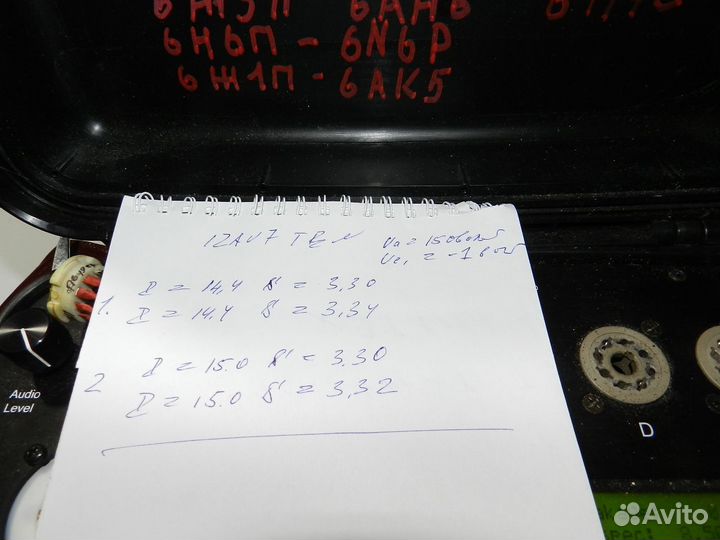 6Н6П - 6N6P
6Ж1П - 6AK5
12AU7
Ua = 150 вольт
= -1 вольт
1. I = 14,4 S = 3,30
I = 14,4 S = 3,34
2 I = 15.0 S = 3.30
I = 15.0 S = 3,32
Audio
Level
D
Avito